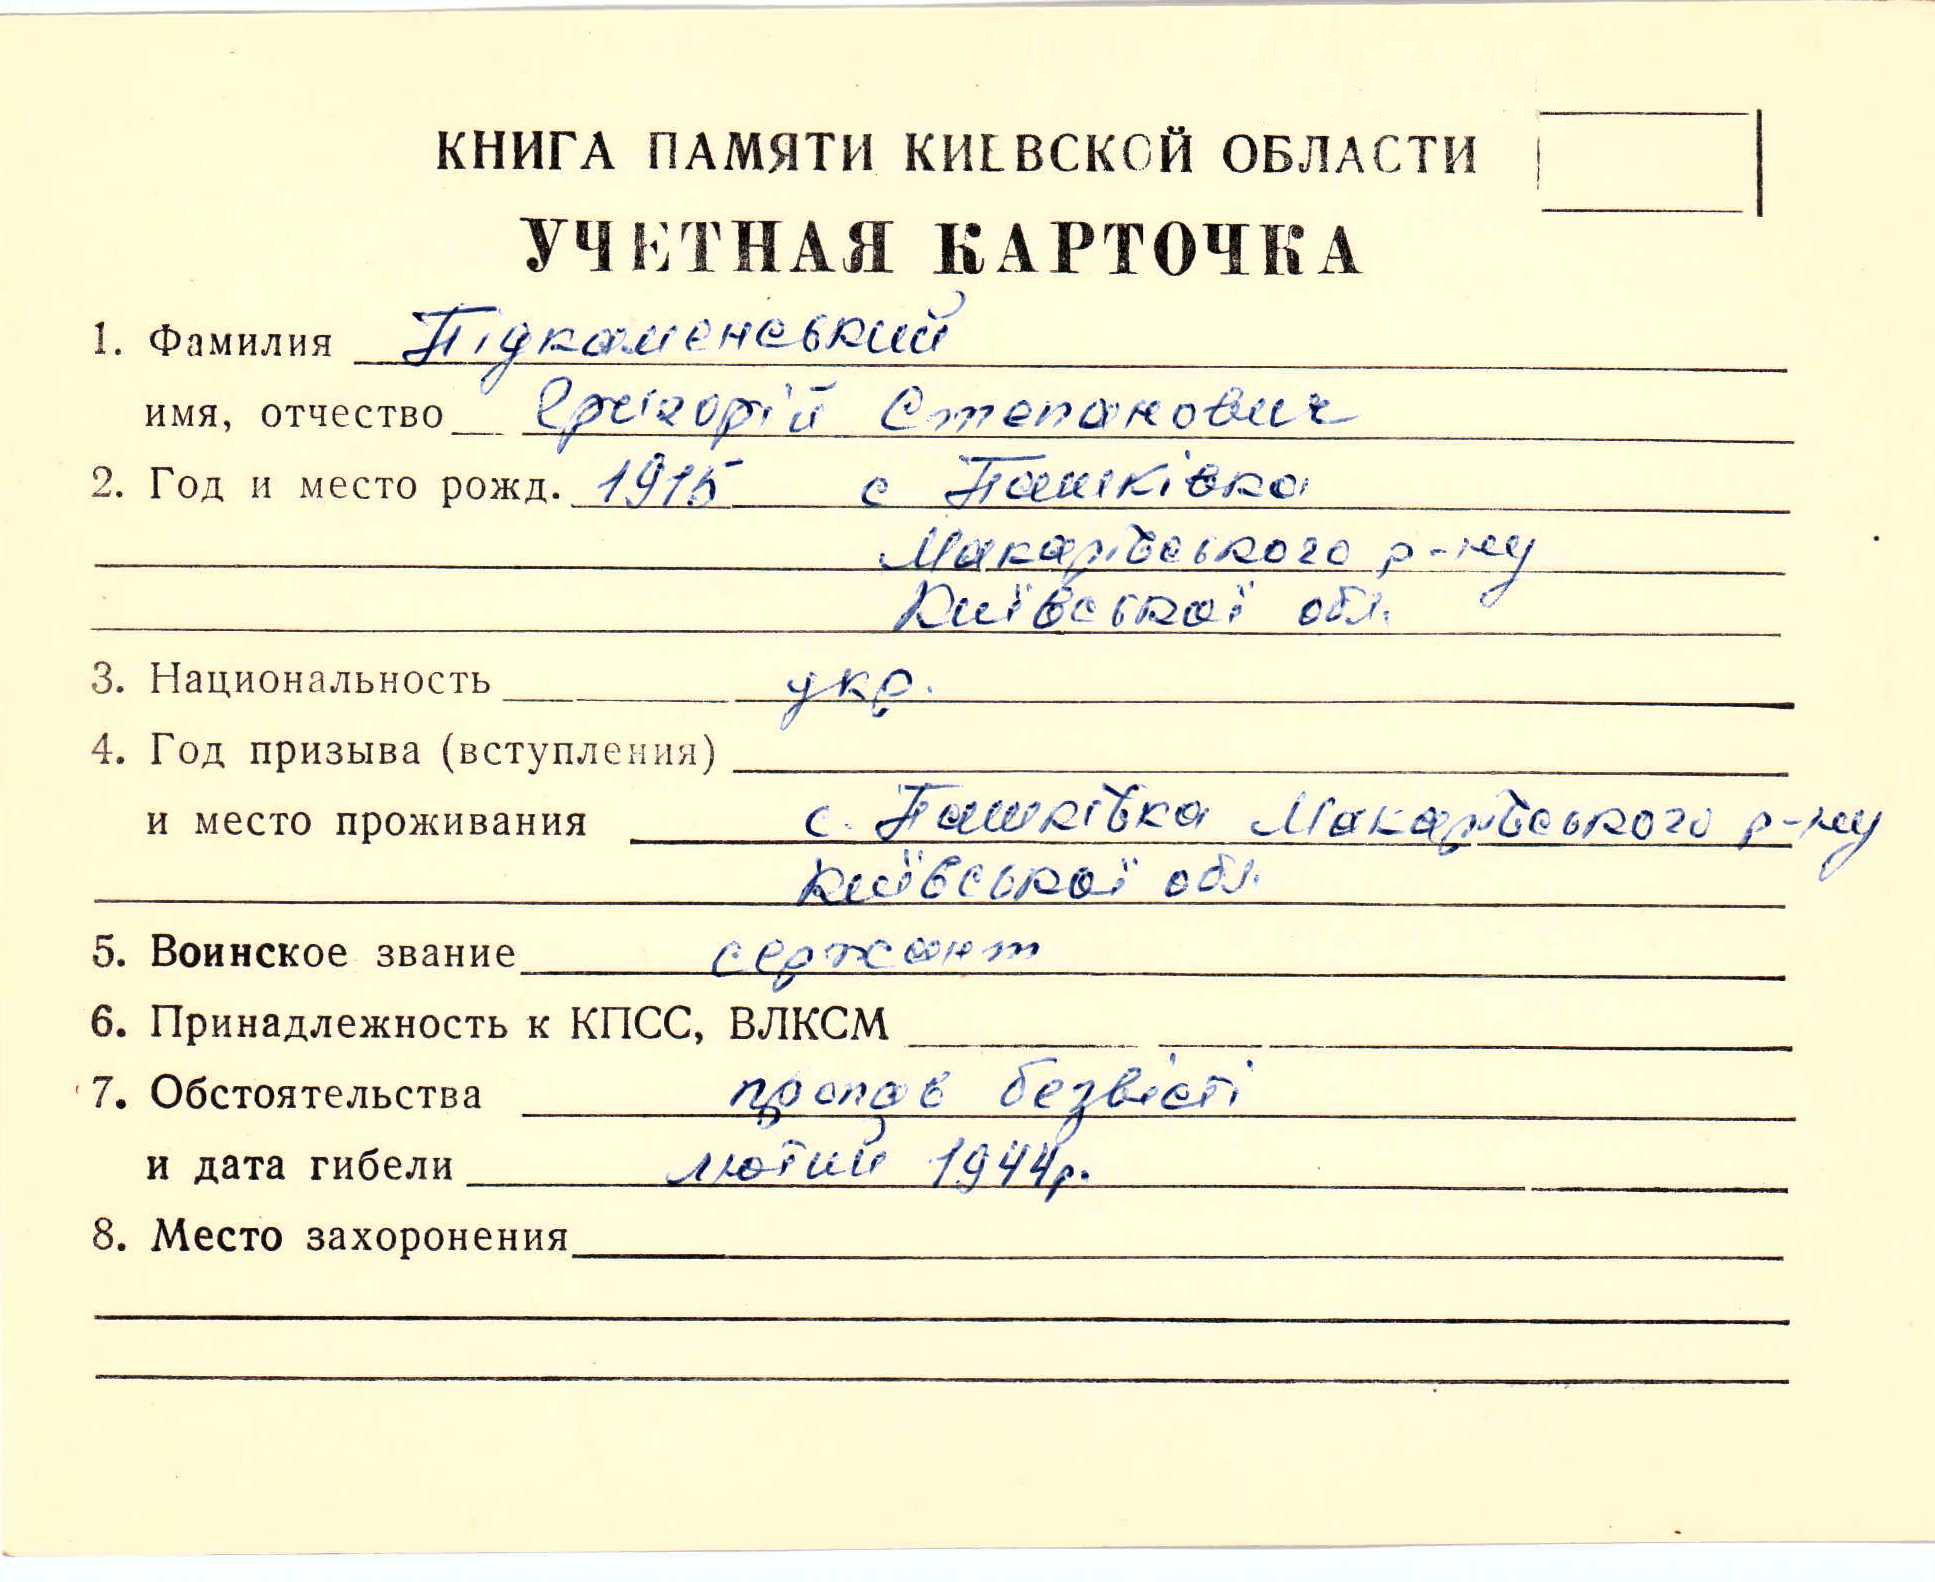 КНИГА ПАМЯТИ КИЕВСКОЙ ОБЛАСТИ
УЧЕТНАЯ КАРТОЧКА
1. Фамилия Підкаменський
имя, отчество Григорій Степанович
2. Год и место рожд. 1915 с Пашківка
Макарівського р-ну
Київської обл.
3. Национальность укр.
4. Год призыва (вступления)
и место проживания с. Пашківка Макарівського р-ну
Київської обл.
5. Воинское звание сержант
6. Принадлежность к КПСС, ВЛКСМ
7. Обстоятельства пропав безвісті
и дата гибели лютий 1944р.
8. Место захоронения